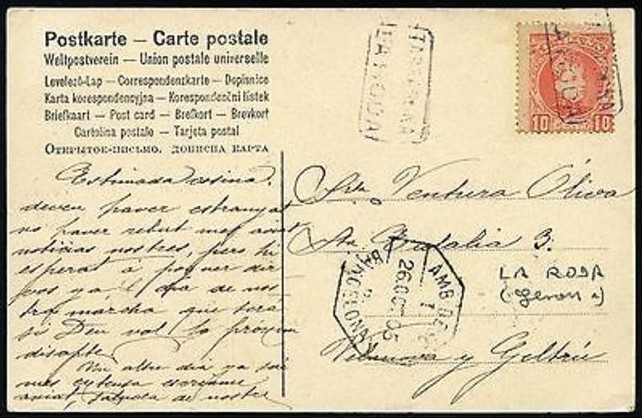 Postkarte — Carte postale
Weltpostverein — Union postale universelle
Levelező-Lap — Correspondenzkarte — Dopisnice
Karta korespondencyjna — Korespondenční listek
Briefkaart — Post card — Brefkort — Brevkort
Cartolina postale — Tarjeta postal
Открытое-письмо. дописна карта
Estimada cosina:
deveu haver estranyat
no haver rebut mes aviat
noticias nostres, pero hi
esperat á poguer dir
vos ya l' dia de nos-
tra marcha que sera
si Deu vol lo proxim
disapte.
Un altre dia ya sere
mes extensa
aviat, saluda de nostre
TARRAGONA
10 10
Srta Ventura Oliva
Sta Eulalia 3:
LA RODA
Vilanova y Geltrú
AMB. DESC.
26 OCT 05
BARCELONA